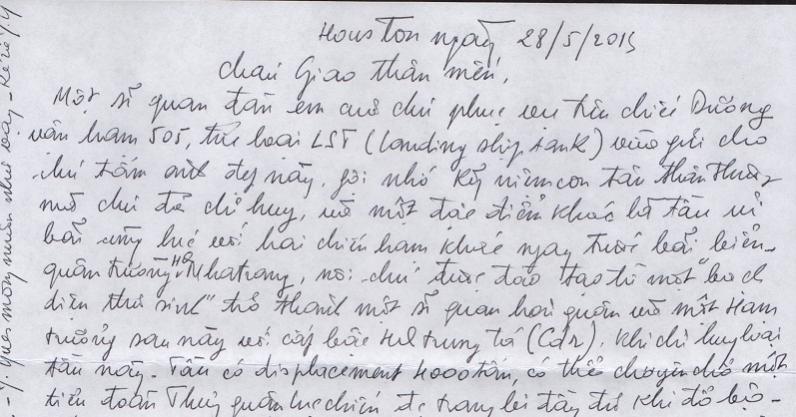 Houston ngày 28/5/2015
cháu Giao thân mến,
Một sĩ quan đàn em cũ chú phục vụ trên chiếc Dương
vận hạm 505, tức loại LST (landing ship tank) vừa gửi cho
chú tấm ảnh đẹp này, gợi nhớ kỷ niệm con tàu thân thương
mà chú đã chỉ huy, và một đặc điểm khác là tàu ủi
bãi cùng lúc với hai chiến hạm khác ngay trước bãi biển
quân trường HQ Nhatrang, nơi chú được đào tạo từ một "bạch
diện thư sinh" trở thành một sĩ quan hải quân và một Hạm
trưởng sau này với cấp bậc HQ trung tá (Cdr), khi chỉ huy loại
tàu này. Tàu có displacement 4000 tấn, có thể chuyên chở một
tiểu đoàn Thủy quân lục chiến được trang bị đầy đủ khi đổ bộ -